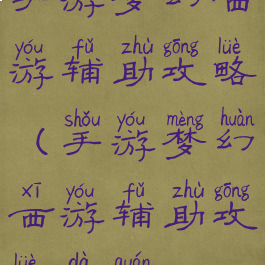 手游梦幻西
yóu fǔ zhù gōng lüè
游辅助攻略
shǒu yóu mèng huàn
(手游梦幻
xī yóu fǔ zhù gōng
西游辅助攻
lüè dà quán